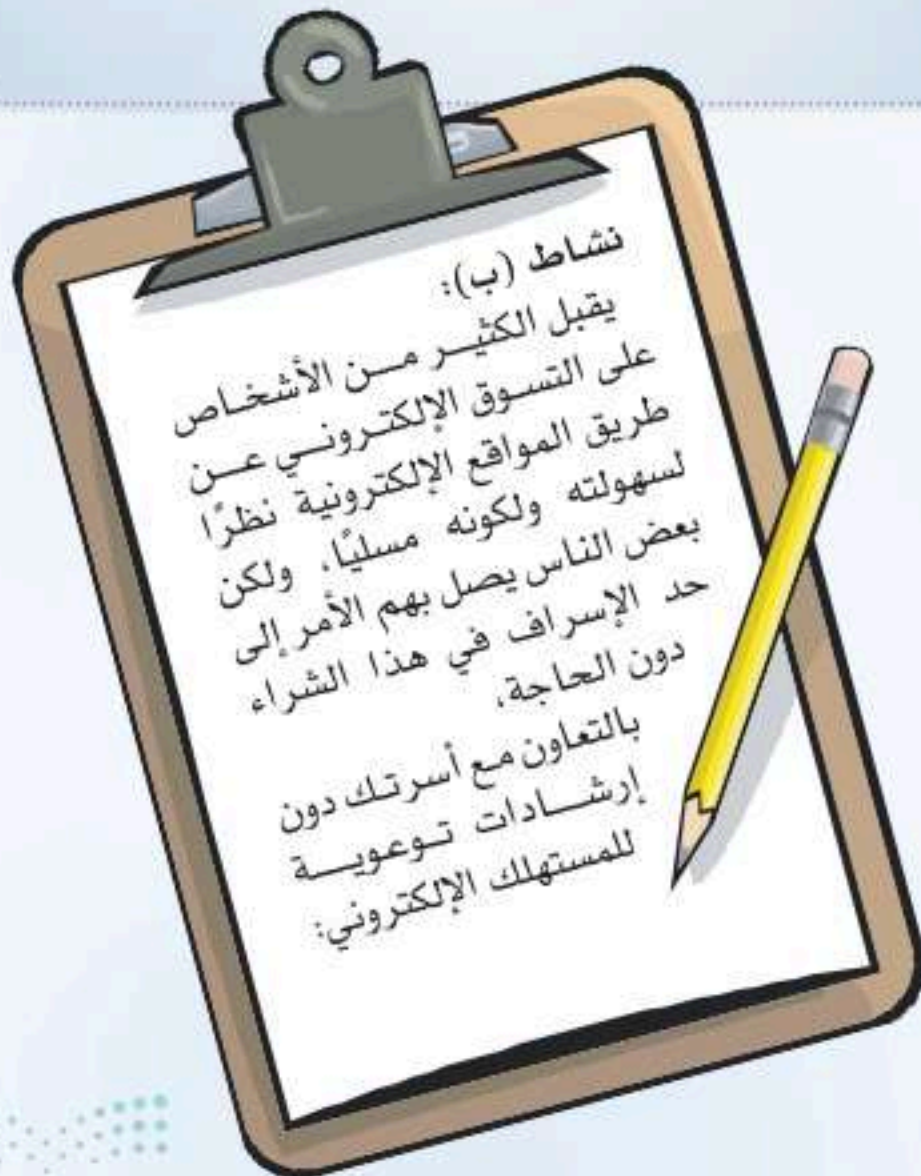 نشاط (ب):
يقبل الكثير من الأشخاص
على التسوق الإلكتروني عن
طريق المواقع الإلكترونية نظرًا
لسهولته ولكونه مسليًا، ولكن
بعض الناس يصل بهم الأمر إلى
حد الإسراف في هذا الشراء
دون الحاجة،
بالتعاون مع أسرتك دون
إرشادات توعوية
للمستهلك الإلكتروني: